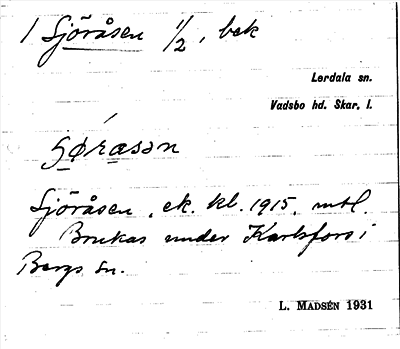 1 Sjöråsen 1/2, bek
Lerdala sn.
Vadsbo hd. Skar. l.
Sjöråsen, ek. kl. 1915, mtl.
Brukas under Karlsfors i
Bergs sn.
L. MADSÉN 1931